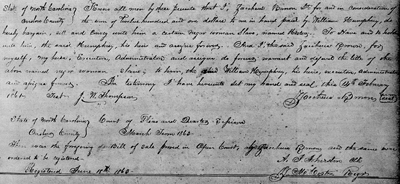 State of North Carolina } Know all men by these presents that I, Zachariah for and in consideration of
County } the sum of twelve hundred and one dollars to me in hand paid by William Humphrey, do
hereby bargain, sell and convey unto him a certain negro woman slave, named To Have and to hold
unto him, the said Humphrey, his heirs and assigns forever. And I, the said for
myself, my heirs, Executors, Administrators and assigns do forever warrant and defend the title of the
above named negro woman Slave, to him, the said William Humphrey, his heirs, executors, administrators
and assigns forever. In testimony I have hereunto set my hand and seal, this 14th February
Test J. W. Thompson (seal)
State of North Carolina } Court of Pleas and Quarter Sessions
County } March Term 1862
Then was the foregoing Bill of Sale proved in Open Court, by and the same was
ordered to be registered.
Registered June 18th 1862